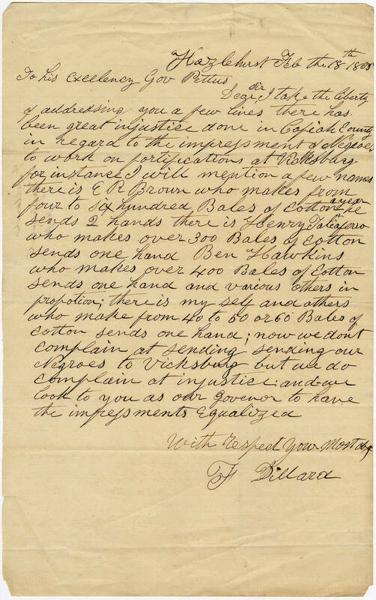 Hazlehurst Feb the 18th 1863
To his Excelency Gov Pettus
Dear Sir I take the liberty
of addressing you a few lines there has
been great injustice done in Copiah County
in regard to the impressment of Negroes
to work on fortifications at Vicksburg
for instance I will mention a few names
there is E R Brown who makes from
four to six hundred Bales of Cotton a year he
sends 2 hands there is Henry Taliaferro
who makes over 300 Bales of cotton
sends one hand Ben Hawkins
who makes over 400 Bales of Cotton
sends one hand and various others in
propotion; there is my self and others
who make from 40 to 50 or 60 Bales of
cotton sends one hand; now we dont
complain at sending sending our
Negroes to Vicksburg but we do
complain at injustice: and we
look to you as our Govenor to have
the impressments Equalized
With respect Your Most
F Dillard